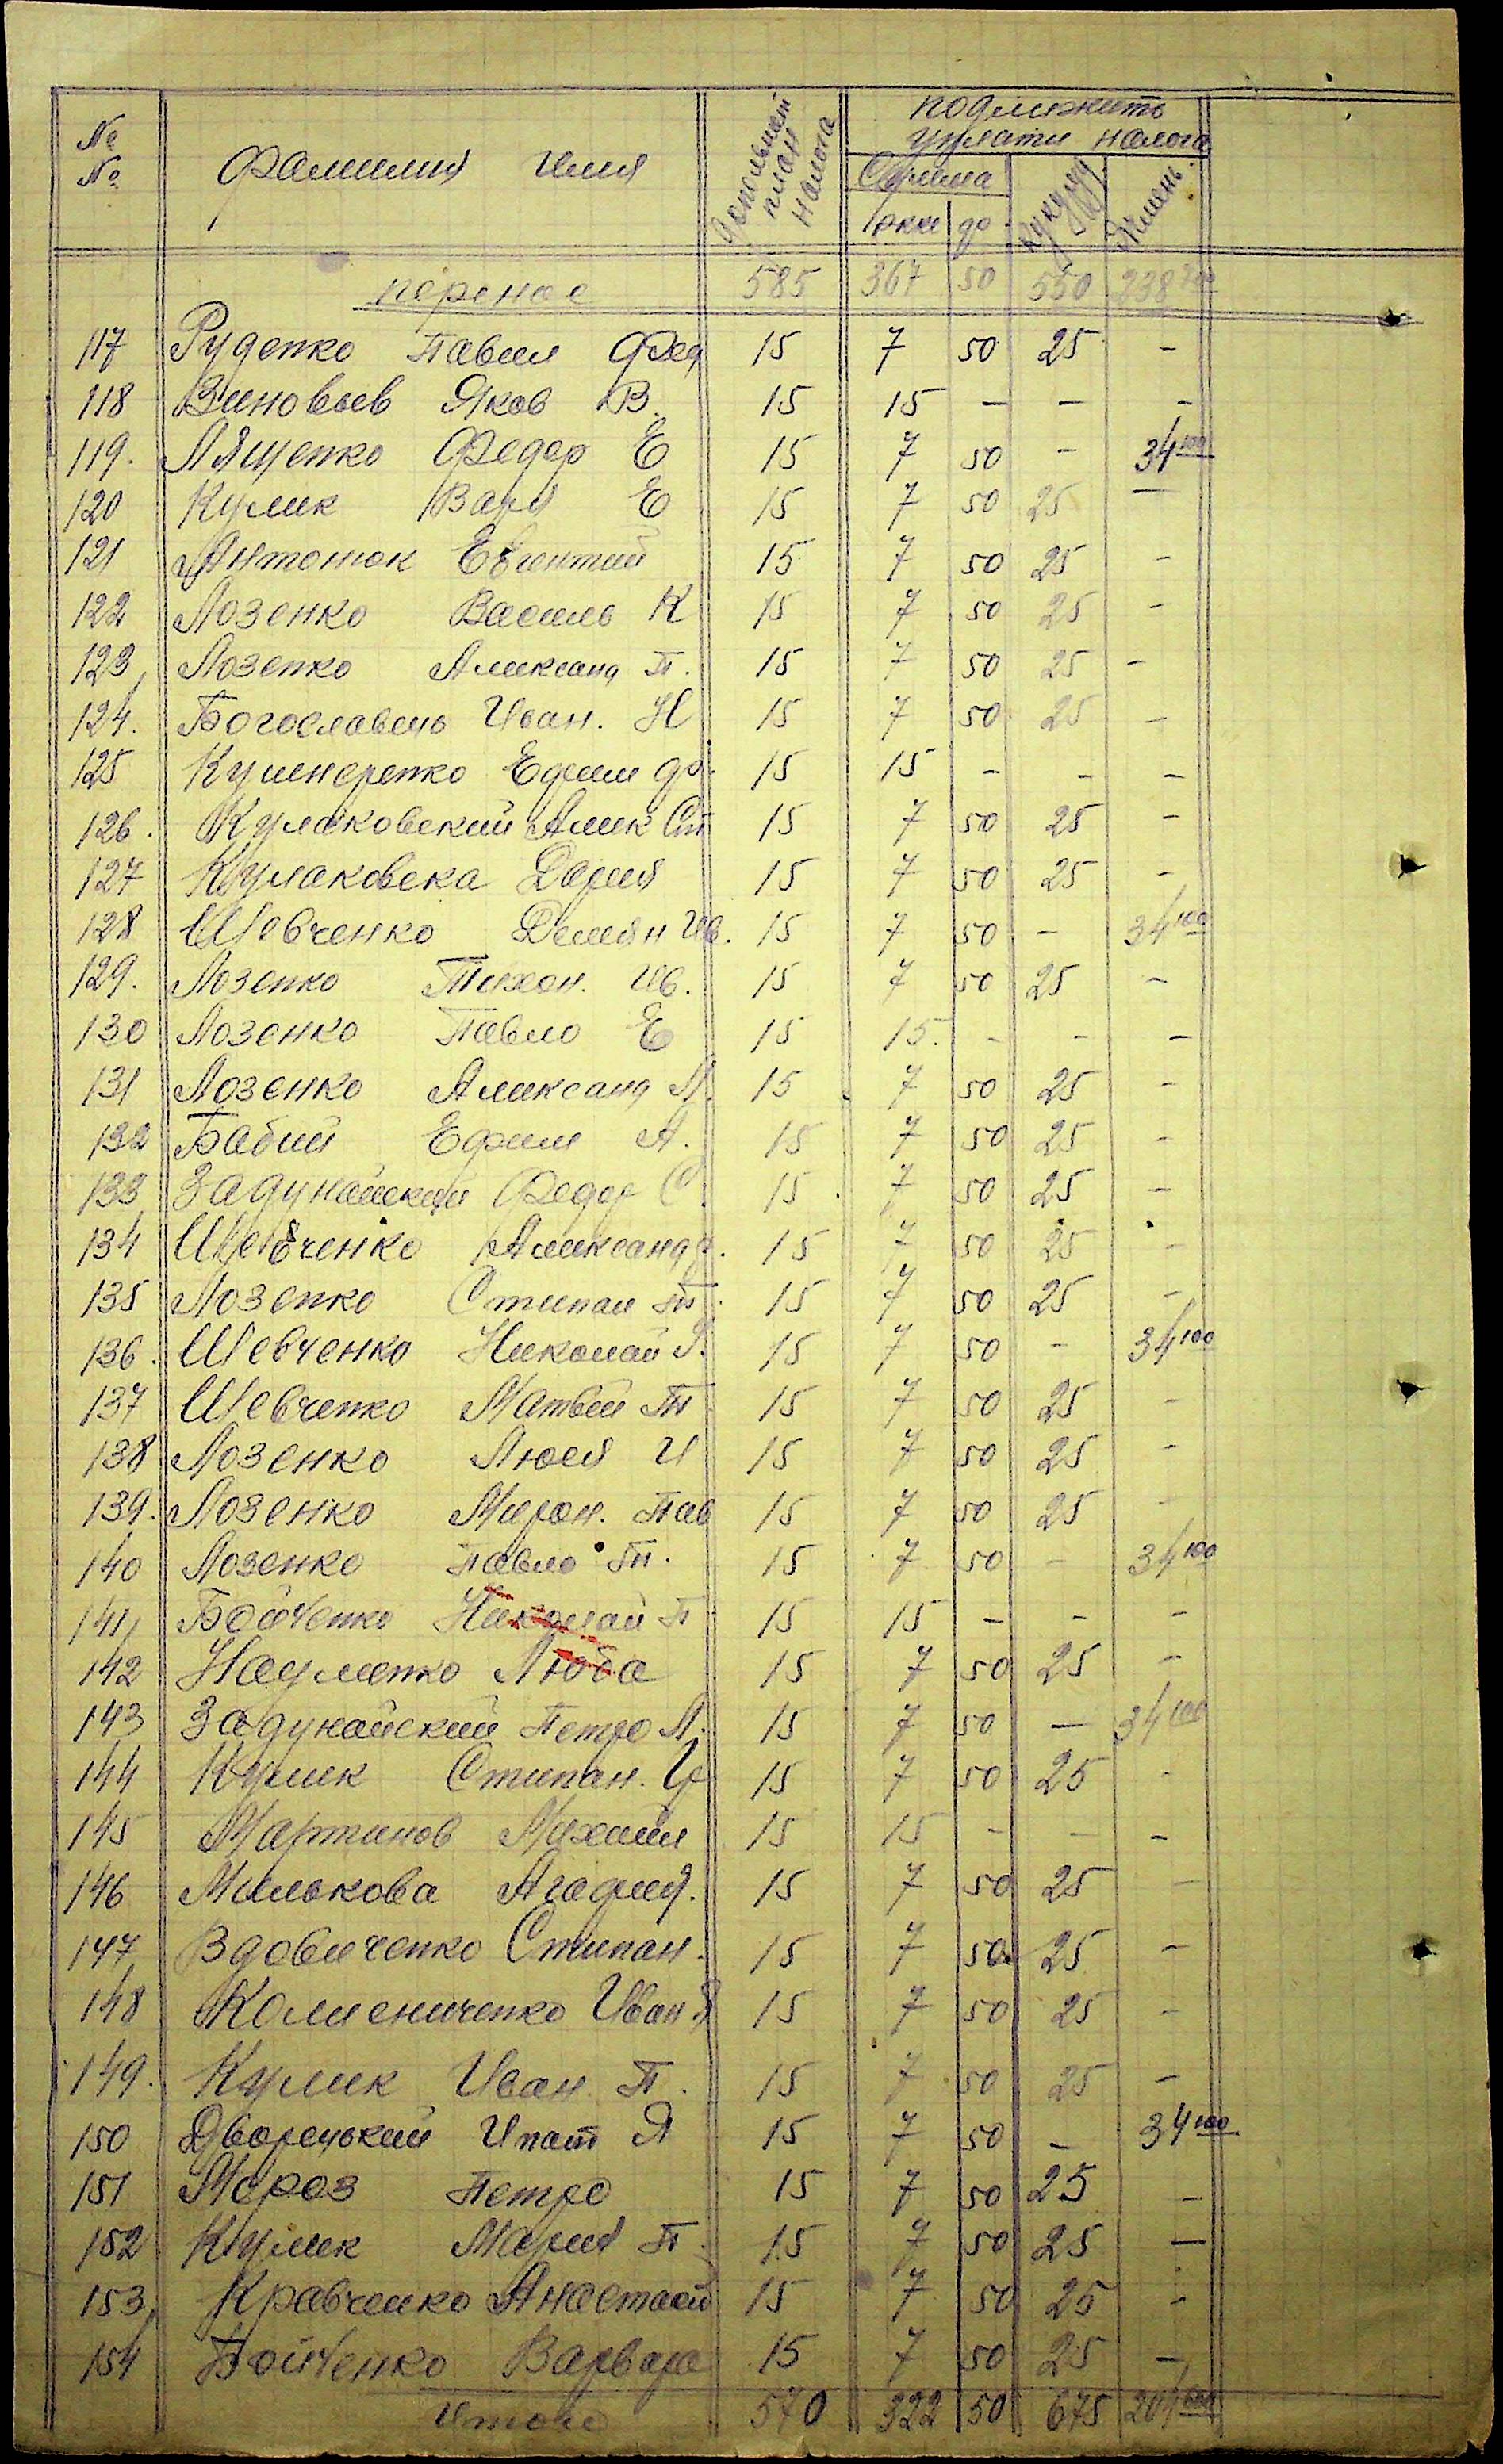 № № Фамилия Имя план налога подлижить
уплати налога
Сумма кукуруд Ячмень
до
перенос 585 367 50 550 238 700
117 Руденко Павел Фед 15 7 50 25 -
118 Зиновьев Яков В. 15 15 - - -
119. Лященко Федор Е 15 7 50 - 34 100
120 Кулик Варя Е 15 7 50 25 -
121 Антонюк 15 7 50 25 -
122 Лозенко Василь К 15 7 50 25 -
123 Лозенко Александ П. 15 7 50 25 -
124. Богославець Иван. Н 15 7 50 25 -
125 Кушнеренко Ефим Ф. 15 15 - - -
126. Кулаковский Алек Ст 15 7 50 25 -
127 Кулаковска Дария 15 7 50 25 -
128 Шевченко Демян Ив. 15 7 50 - 34 100
129. Лозенко Тихон. Ив. 15 7 50 25 -
130 Лозенко Павло Е 15 15. - - -
131 Лозенко Александ М. 15 7 50 25 -
132 Бабий Ефим А. 15 7 50 25 -
133 Задунайский Федор С. 15 7 50 25 -
134 Шевченко Александр. 15 7 50 25 -
135 Лозенко Степан 15 7 50 25 -
136. Шевченко Николай 15 7 50 - 34 100
137 Шевченко Матвей 15 7 50 25 -
138 Лозенко Люся И 15 7 50 25 -
139. Лозенко Мирон. Пав 15 7 50 25 -
140 Лозенко Павло 15 7 50 - 34 100
141 Бойченко Николай П 15 15 - - -
142 Науменко Люба 15 7 50 25 -
143 Задунайский Петро Л. 15 7 50 - 34 100
144 Кулик Степан. 15 7 50 25 -
145 Мартинов Михаил 15 15 - - -
146 Милькова Агафия. 15 7 50 25 -
147 Вдовиченко Степан. 15 7 50 25 -
148 Колесниченко Иван 15 7 50 25 -
149. Кулик Иван. П. 15 7 50 25 -
150 Дворецький Ипат Я 15 7 50 - 34 100
151 Мороз Петро 15 7 50 25 -
152 Кулик Мария П. 15 7 50 25 -
153 Кравченко Анастасий 15 7 50 25 -
154 Бойченко Варвара 15 7 50 25 -
Итого 570 322 50 675 204 600